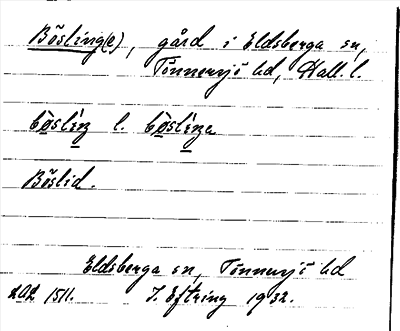 Bösling(e), gård i Eldsberga sn,
Tönnersjö hd, Hall. l.
bö̀slíŋ l. bö̀slíŋa
Böslid.
Eldsberga sn, Tönnersjö hd
1511. J. Eftring 1932.